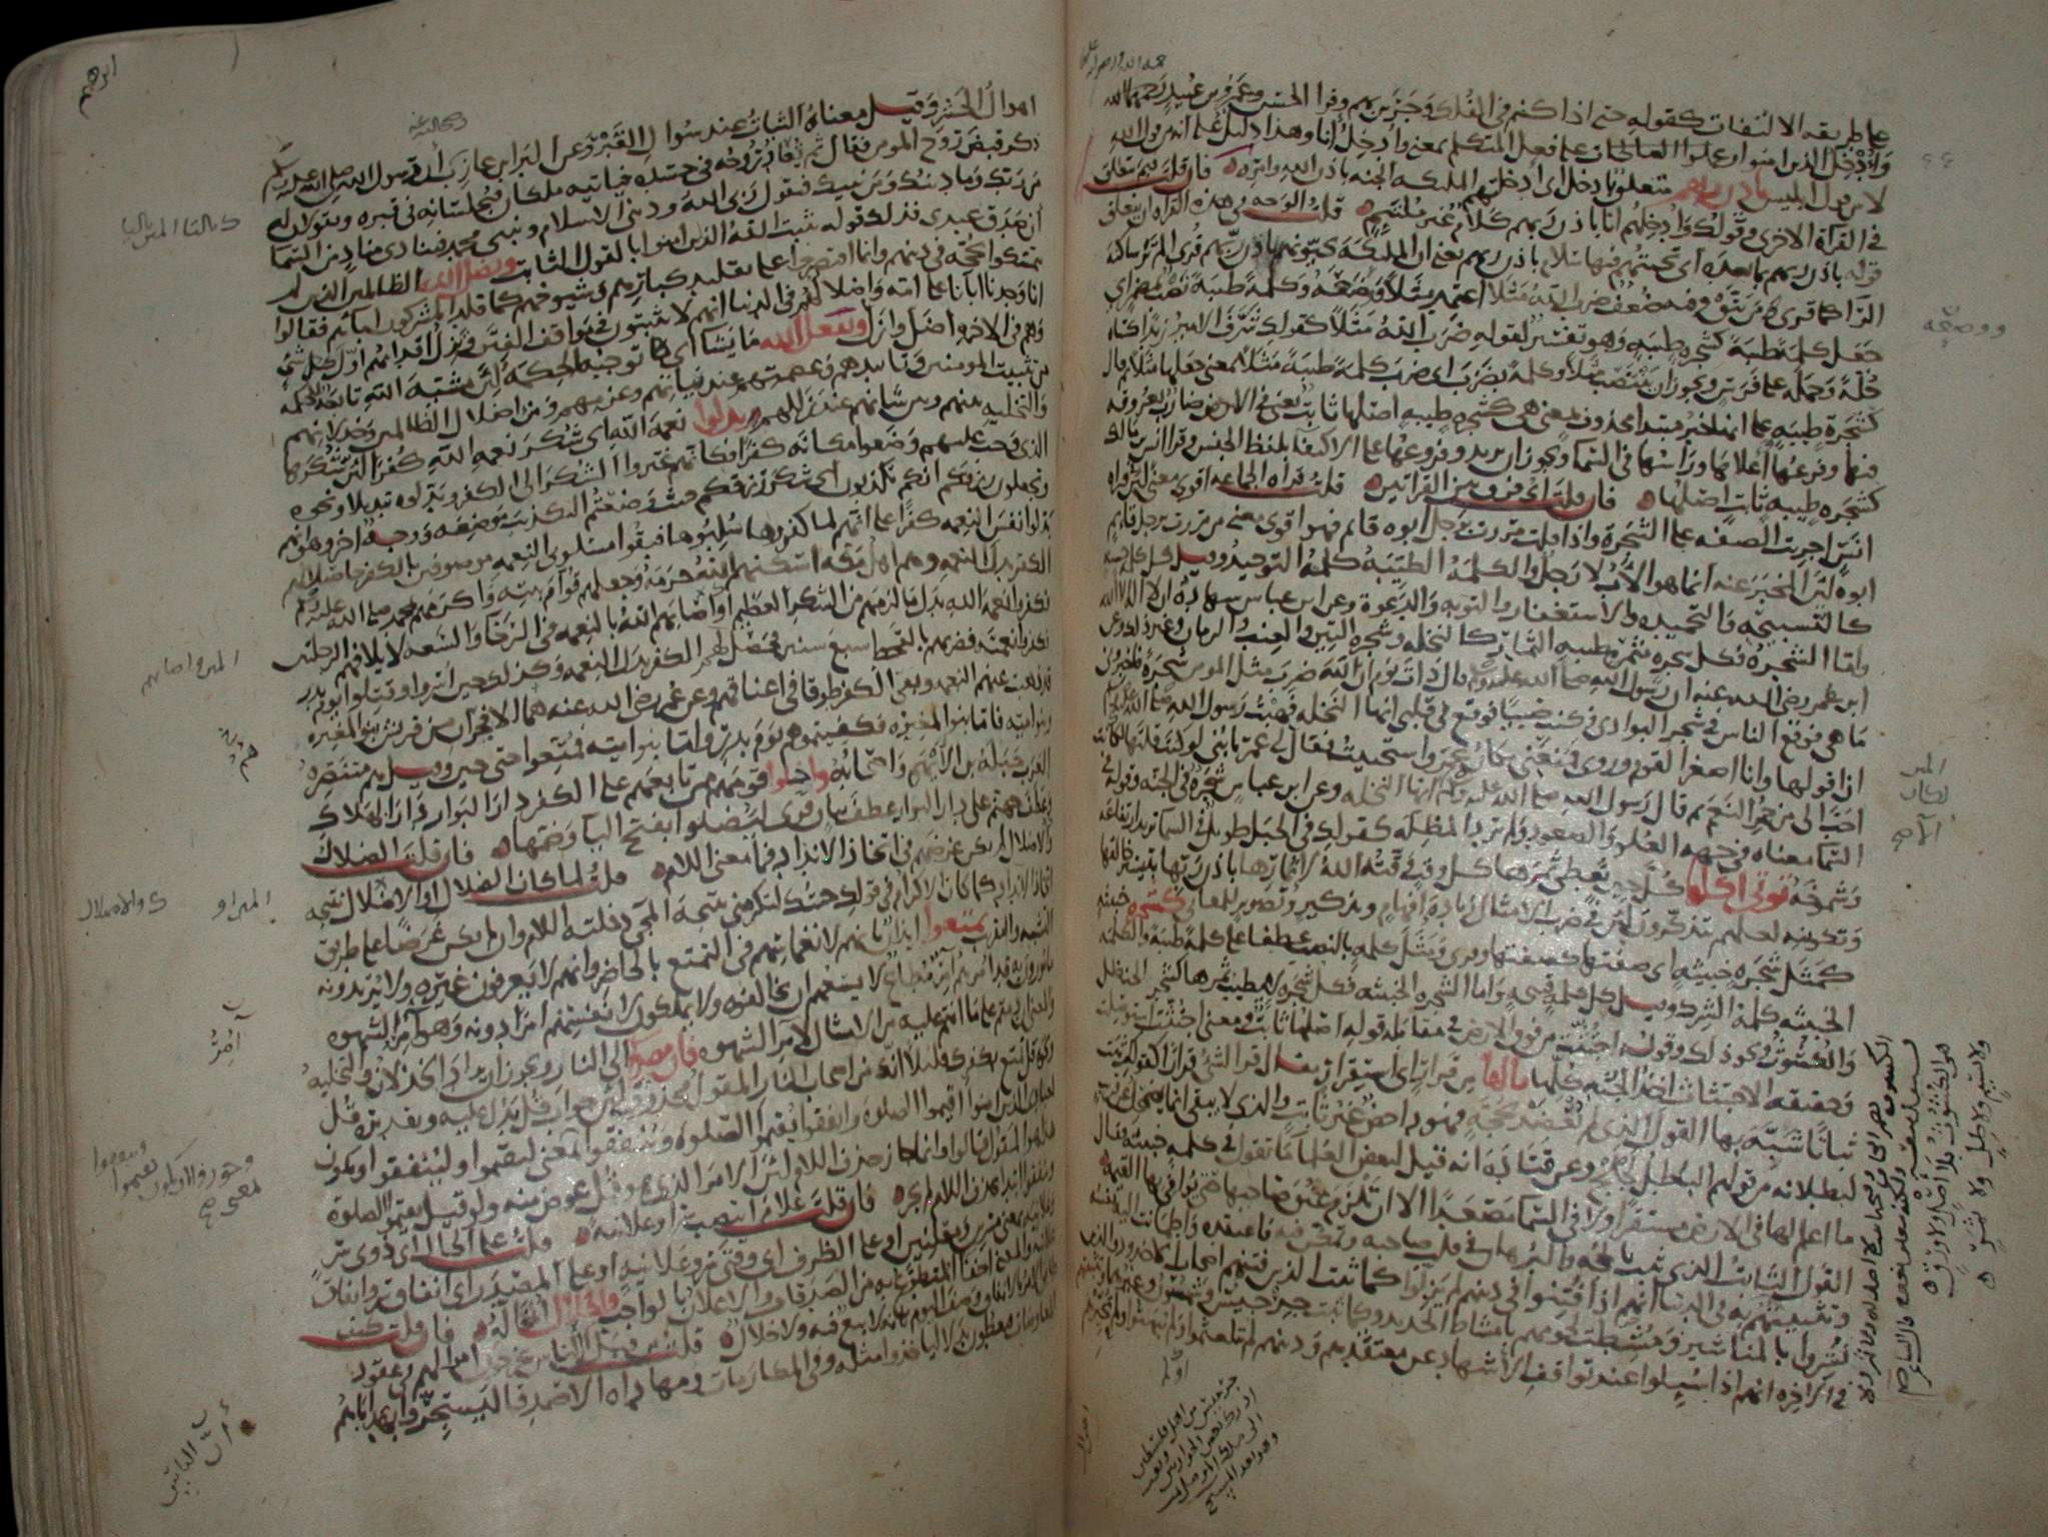 على طريقه الالتفات كقوله حتى اذا كنتم فى الفلك وجرين بهم وقرا الحسن وعمرو بن عبيد رحمهما الله
وادخل الذين امنوا وعملوا الصالحات على فعل المتكلم بمعنى وادخل انا وهذا دليل على انه من قول الله
لا من قول ابليس باذن ربهم متعلق بادخل اى ادخلتهم الملئكه الجنه باذن الله وامره فان قلت فبم يتعلق
فى القراة الاخرى وقولك وادخلهم انا باذن ربهم كلام غير ملتئم قلت الوجه فى هذه القراه ان يتعلق
قوله باذن ربهم بما بعده اى تحيتهم فيها سلام باذن ربهم يعنى ان الملئكة يحيونهم باذن ربهم قرى الم تر ساكنة
الرا كما قرى من يتق وفيه ضعف ضرب الله مثلا اعتمد مثلا ووضعه وكلمة طيبة نصب بمضمر اى
جعل كلمة طيبة كشجره طيبه وهو تفسير لقوله ضرب الله مثلا كقولك شرف الامير زيدا كساه
حلة وحمله على فرس ويجوز ان ينتصب مثلا وكلمة بضرب اى ضرب كلمة طيبة مثلا بمعنى جعلها مثلا ثم قال
كشجرة طيبه على انها خبر مبتدا محذوف بمعنى هى كشجره طيبه اصلها ثابت يعنى فى الارض ضارب بعروقه
فيها وفرعها اعلاها وراسها فى السما ويجوز ان يريد وفروعها على الاكتفا بلفظ الجنس وقرا انس بن مالك
كشجره طيبه ثابت اصلها فان قلت اى فرق بين القراتين قلت قراه الجماعه اقوى معنى لان فى قراه
انس اجريت الصفه على الشجرة واذا قلت مررت برجل ابوه قائم فهو اقوى معنى من مررت برجل قائم
ابوه لان المخبر عنه انما هو الاب لا رجل والكلمة الطيبة كلمة التوحيد وقيل كل كلمة حسنة
كالتسبيحه والتحميده والاستغفار والتوبه والدعوة وعن ابن عباس شهادة ان لا اله الا الله
واما الشجرة فكل شجره مثمره طيبه الثمار كالنخله وشجره التين والعنب والرمان وغير ذلك وعن
ابن عمر رضى الله عنه ان رسول الله صلى الله عليه وسلم قال ذات يوم ان الله ضرب مثل المومن شجرة فاخبرونى
ما هى فوقع الناس فى شجر البوادى وكنت صبيا فوقع فى قلبى انها النخله فهبت رسول الله صلى الله عليه وسلم
ان اقولها وانا اصغر القوم وروى فمنعنى مكان عمر واستحييت فقال لى عمر يا بنى لو كنت قلتها لكانت
احب الى من حمر النعم ثم قال رسول الله صلى الله عليه وسلم انها النخله وعن ابن عباس شجرة فى الجنه وقوله فى
السما معناه فى جهه العلو والصعود ولم يرد المظله كقولك فى الجبل طويل فى السما تريد ارتفاعه
وشموخه توتى اكلها كل حين تعطى ثمرها كل وقت وقته الله لاثمارها باذن ربها بتيسير خالقها
وتكوينه لعلهم يتذكرون لان فى ضرب الامثال زيادة افهام وتذكير وتصوير للمعانى كشجره خبيثه
كمثل شجره خبيثه اى صفتها كصفتها وقرى ومثل كلمه بالنصب عطفا على كلمة طيبة والكلمه
الخبيثه كلمة الشرك وقيل كل كلمة قبيحه واما الشجره الخبيثه فكل شجره لا يطيب ثمرها كشجر الحنظل
والكشوث ونحو ذلك وقوله اجتثت من فوق الارض فى مقابله قوله اصلها ثابت ومعنى اجتثت استوصلت
وحقيقه الاجتثاث اخذ الجثه كلها مالها من قرار اى استقرار يقال قر الشى قرارا كقولك ثبت
ثباتا شبه بها القول الذى لم يعضد بحجة فهو داحض غير ثابت والذى لا يبقى انما يضمحل عن قريب
لبطلانه من قولهم الباطل لجلج وعن قتاده انه قيل لبعض العلما ما تقول فى كلمه خبيثه فقال
ما اعلم لها فى الارض مستقرا ولا فى السما مصعدا الا ان تلزم عنق صاحبها حتى يوافى بها القيمه
القول الثابت الذى ثبت بالحجه والبرهان فى قلب صاحبه وتمكن فيه فاعتقده واطمانت اليه نفسه
وتثبيتهم به فى الدنيا انهم اذا فتنوا فى دينهم لم يزلوا كما ثبت الذين فتنهم اصحاب الاخدود والذين
نشروا بالمناشير ومشطت لحومهم بامشاط الحديد وكما ثبت جرجيس وشمسون وغيرهما وتثبيتهم
فى الاخره انهم اذا سيلوا عند تواقف الاشهاد عن معتقدهم ودينهم لم يتلعثموا ولم يبهتوا ولم تحيرهم
اهوال الحشر وقيل معناه الثبات عند سوال القبر وعن البرا بن عازب ان رسول الله صلى الله عليه وسلم
ذكر قبض روح المومن فقال ثم تعاد روحه فى جسده فياتيه ملكان فيجلسانه فى قبره ويقولان له
من ربك وما دينك ومن نبيك فيقول ربى الله ودينى الاسلام ونبيى محمد فينادى مناد من السما
ان صدق عبدى فذلك قوله يثبت الله الذين امنوا بالقول الثابت ويضل الله الظالمين الذين لم
يتمسكوا بحجة فى دينهم وانما اقتصروا على تقليد كبارهم وشيوخهم كما قلد المشركون اباهم فقالوا
انا وجدنا ابانا على امه واضلالهم فى الدنيا انهم لا يثبتون فى مواقف الفتن وتزل اقدامهم اول كل شى
وهم فى الاخره اضل وازل ويفعل الله ما يشا اى ما توجبه الحكمة لان مشية الله تابعه للحكمه
من تثبيت المومنين وتاييدهم وعصمتهم عند ثباتهم وعزمهم ومن اضلال الظالمين وخذلانهم
والتخليه بينهم وبين شانهم عند زللهم بدلوا نعمة الله اى شكر نعمه الله كفرا لان شكرها
الذى وجب عليهم وضعوا مكانه كفرا فكانهم غيروا الشكر الى الكفر وبدلوه تبديلا ونحوه
وتجعلون رزقكم انكم تكذبون اى شكر رزقكم حيث وضعتم التكذيب موضعه ووجه اخر وهو انهم
بدلوا نفس النعمه كفرا على انهم لما كفروها سلبوها فبقوا مسلوبى النعمه موصوفين بالكفر حاصلا لهم
الكفر بدل النعمه وهم اهل مكه اسكنهم الله حرمه وجعلهم قوام بيته واكرمهم بمحمد صلى الله عليه وسلم
فكفروا نعمة الله بدل ما لزمهم من الشكر العظيم او اصابهم الله بالنعمه فى الرخا والسعه لايلافهم الرحلتين
فكفروا نعمته فضربهم بالقحط سبع سنين فحصل لهم الكفر بدل النعمه وكذلك حين اسروا وقتلوا يوم بدر
قد ذهبت عنهم النعمه وبقى الكفر طوقا فى اعناقهم وعن عمر رضى الله عنه هما الافجران من قريش بنو المغيره
وبنو اميه فاما بنو المغيره فكفيتموهم يوم بدر واما بنو اميه فمتعوا حتى حين وقيل هم متنصرة
العرب جبلة بن الايهم واصحابه واحلوا قومهم ممن تابعهم على الكفر دار البوار دار الهلاك
وعطف جهنم على دار البوار عطف بيان قرى ليضلوا بفتح اليا وضمها فان قلت الضلال
والاضلال لم يكن غرضهم فى اتخاذ الانداد فما معنى اللام قلت لما كان الضلال او الاضلال نتيجه
اتخاذ الانداد كما كان الاكرام فى قولك جيتك لتكرمنى نتيجة المجى دخلته اللام وان لم يكن غرضا على طريق
التشبيه والتقريب تمتعوا ايذان بانهم لانغماسهم فى التمتع بالحاضر وانهم لا يعرفون غيره ولا يريدونه
مامورون به قد امرهم آمر مطاع لا يسعهم ان يخالفوه ولا يملكون لانفسهم امرا دونه وهو آمر الشهوه
والمعنى ان دمتم على ما انتم عليه من الامتثال لآمر الشهوه فان مصيركم الى النار ويجوز ان يراد الخذلان والتخليه
ونحوه قل تمتع بكفرك قليلا انك من اصحاب النار المقول محذوف لان جواب قل يدل عليه وتقديره قل
لعبادى الذين امنوا اقيموا الصلوة وانفقوا يقيموا الصلوة وينفقوا بمعنى ليقيموا ولينفقوا ويكون
هذا هو المقول قالوا وانما جاز حذف اللام لان الامر الذى هو قل عوض منه ولو قيل يقيموا الصلوة
وينفقوا ابتدا بحذف اللام لم يجز فان قلت علام انتصب سرا وعلانيه قلت على الحال اى ذوى سر
وعلانيه بمعنى مسرين ومعلنين او على الظرف اى وقتى سر وعلانيه او على المصدر اى انفاق سر وانفاق
علانيه والمعنى اخفا المتطوع به من الصدقات والاعلان بالواجب والخلال المخاله فان قلت كيف
طابق الامر بالانفاق وصف اليوم بانه لا بيع فيه ولا خلال قلت من قبل ان الناس يخرجون اموالهم فى عقود
المعاوضات فيعطون بدلا لياخذوا مثله وفى المكارمات ومهاداه الاصدقا ليستجروا بهداياهم